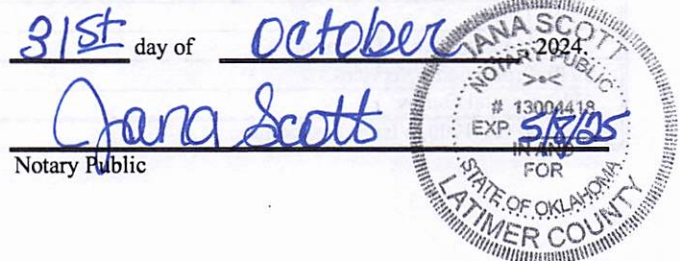 31st day of October 2024.
Jana Scott
Notary Public
JANA SCOTT
NOTARY PUBLIC
# 13004418
EXP. 5/8/25
IN AND
FOR
STATE OF OKLAHOMA
LATIMER COUNTY